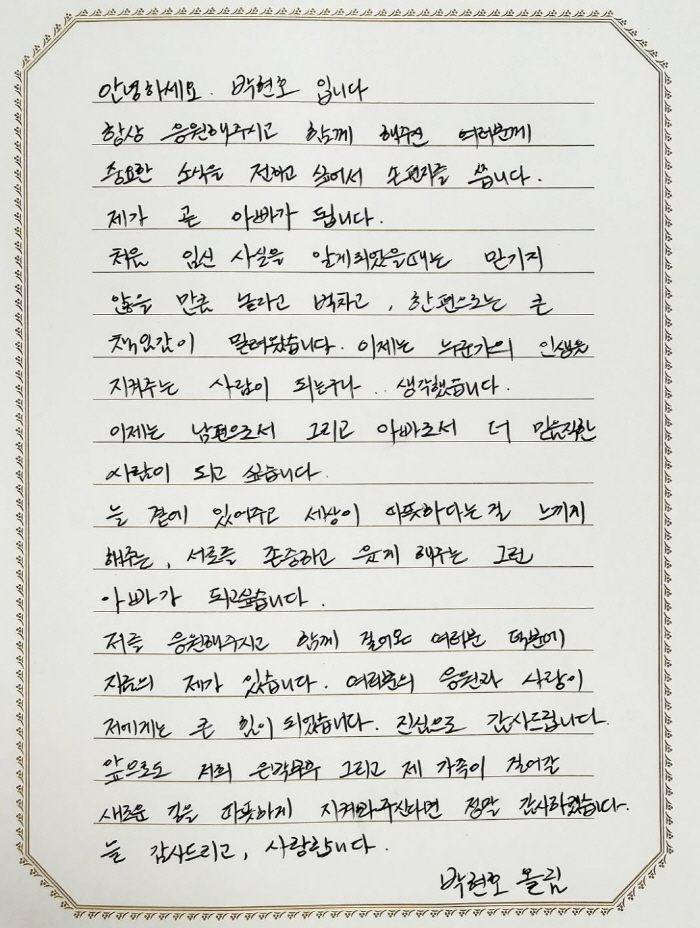 안녕하세요. 박현호 입니다
항상 응원해주시고 함께 해주신 여러분께
중요한 소식을 전하고 싶어서 손편지를 씁니다.
제가 곧 아빠가 됩니다.
처음 임신 사실을 알게되었을때는 믿기지
않을 만큼 놀라고 벅차고, 한편으로는 큰
책임감이 밀려왔습니다. 이제는 누군가의 인생을
지켜주는 사람이 되는구나.. 생각했습니다.
이제는 남편으로서 그리고 아빠로서 더 믿음직한
사람이 되고 싶습니다.
늘 곁에 있어주고 세상이 따뜻하다는걸 느끼게
해주는, 서로를 존중하고 웃게 해주는 그런
아빠가 되고싶습니다.
저를 응원해주시고 함께 걸어온 여러분 덕분에
지금의 제가 있습니다. 여러분의 응원과 사랑이
저에게는 큰 힘이 되었습니다. 진심으로 감사드립니다.
앞으로도 저희 은박부부 그리고 제 가족이 걸어갈
새로운 길을 따뜻하게 지켜봐주신다면 정말 감사하겠습니다.
늘 감사드리고, 사랑합니다.
박현호 올림